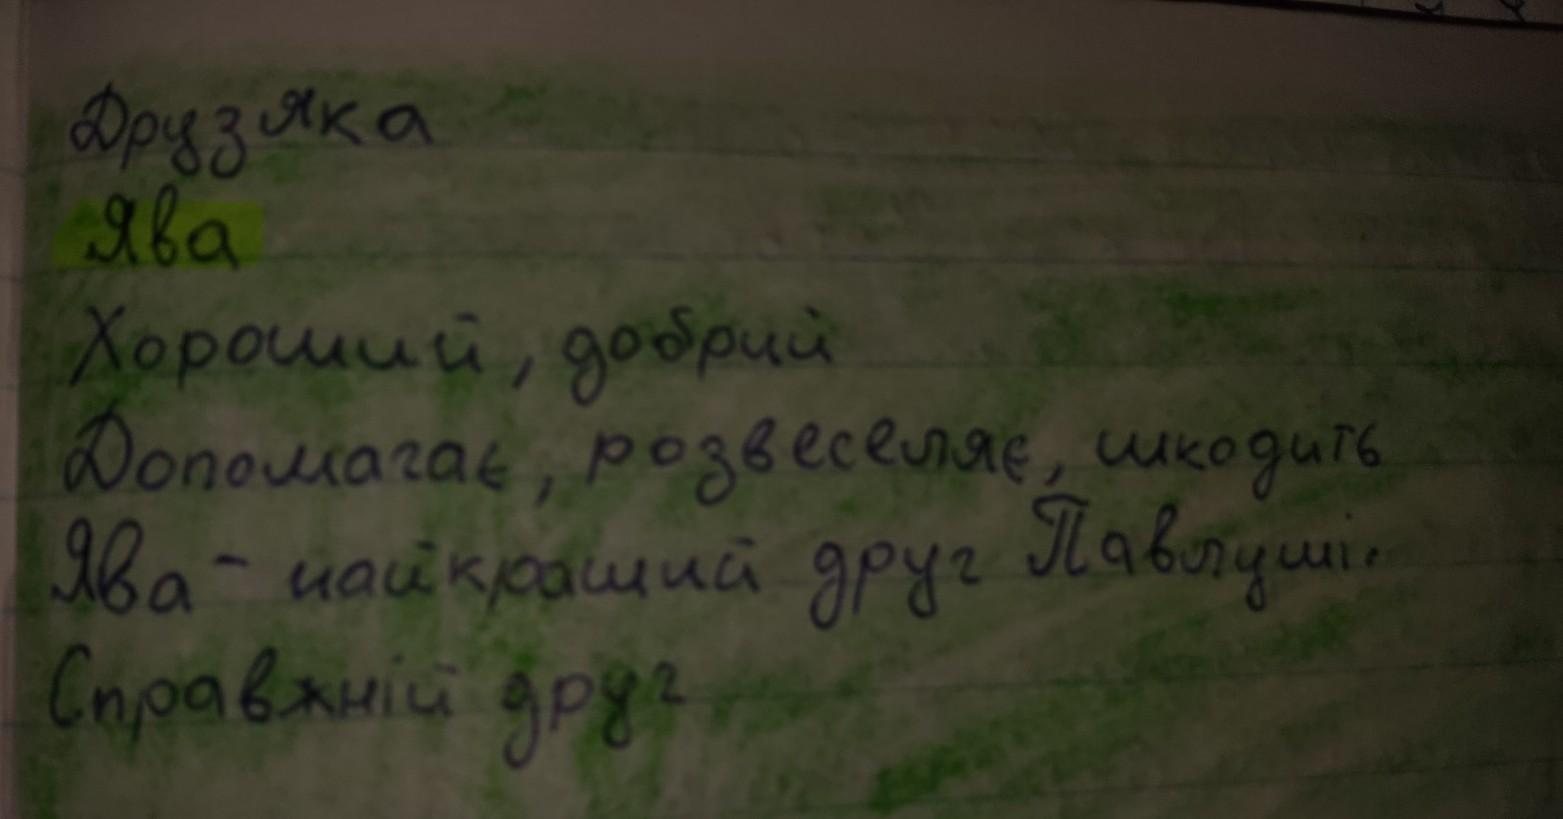 Друзяка
Ява
Хороший, добрий
Допомагає, розвеселяє, шкодить
Ява - найкращий друг Павлуші.
Справжній друг